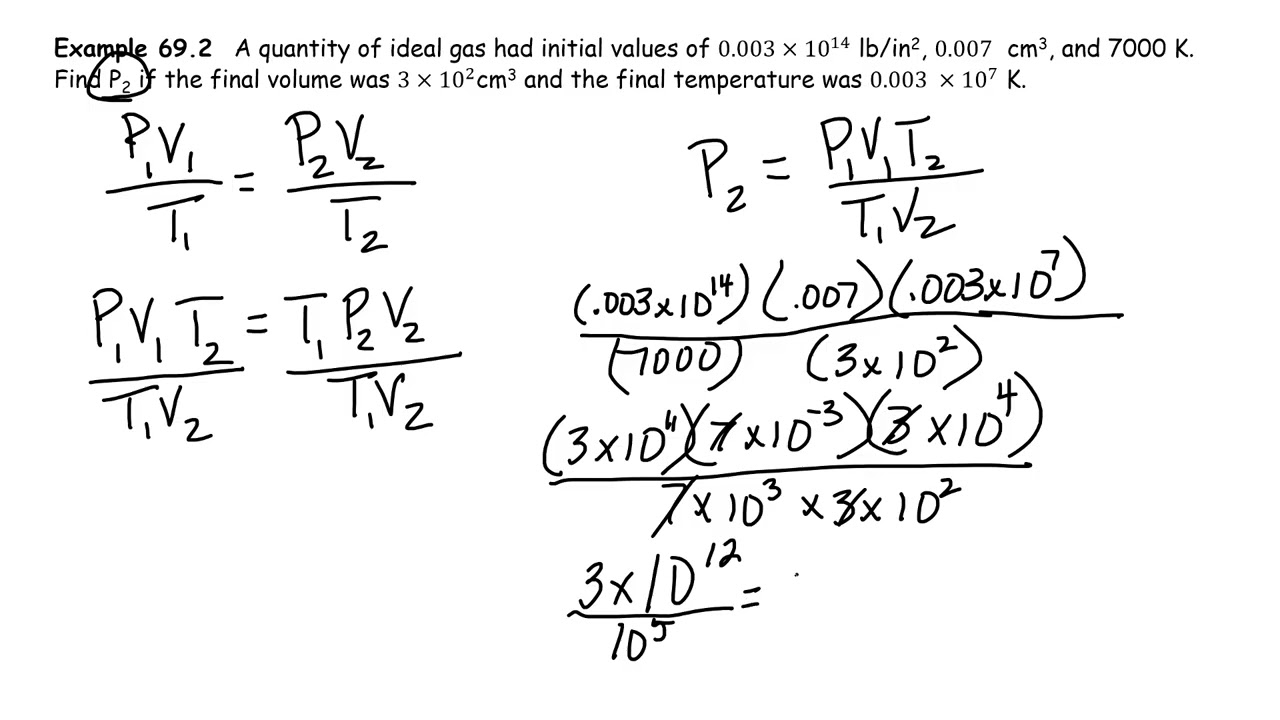 Example 69.2 A quantity of ideal gas had initial values of 0.003 × 10¹⁴ lb/in², 0.007 cm³, and 7000 K.
Find P₂ if the final volume was 3 × 10²cm³ and the final temperature was 0.003 × 10⁷ K.
P₁V₁ / T₁ = P₂V₂ / T₂
P₁V₁T₂ / T₁V₂ = T₁P₂V₂ / T₁V₂
P₂ = P₁V₁T₂ / T₁V₂
(.003x10¹⁴)(.007)(.003x10⁷)
(7000) (3x10²)
(3x10¹¹)(7x10⁻³)(3x10⁴)
7x10³ x3x10²
3x10¹² =
10⁵